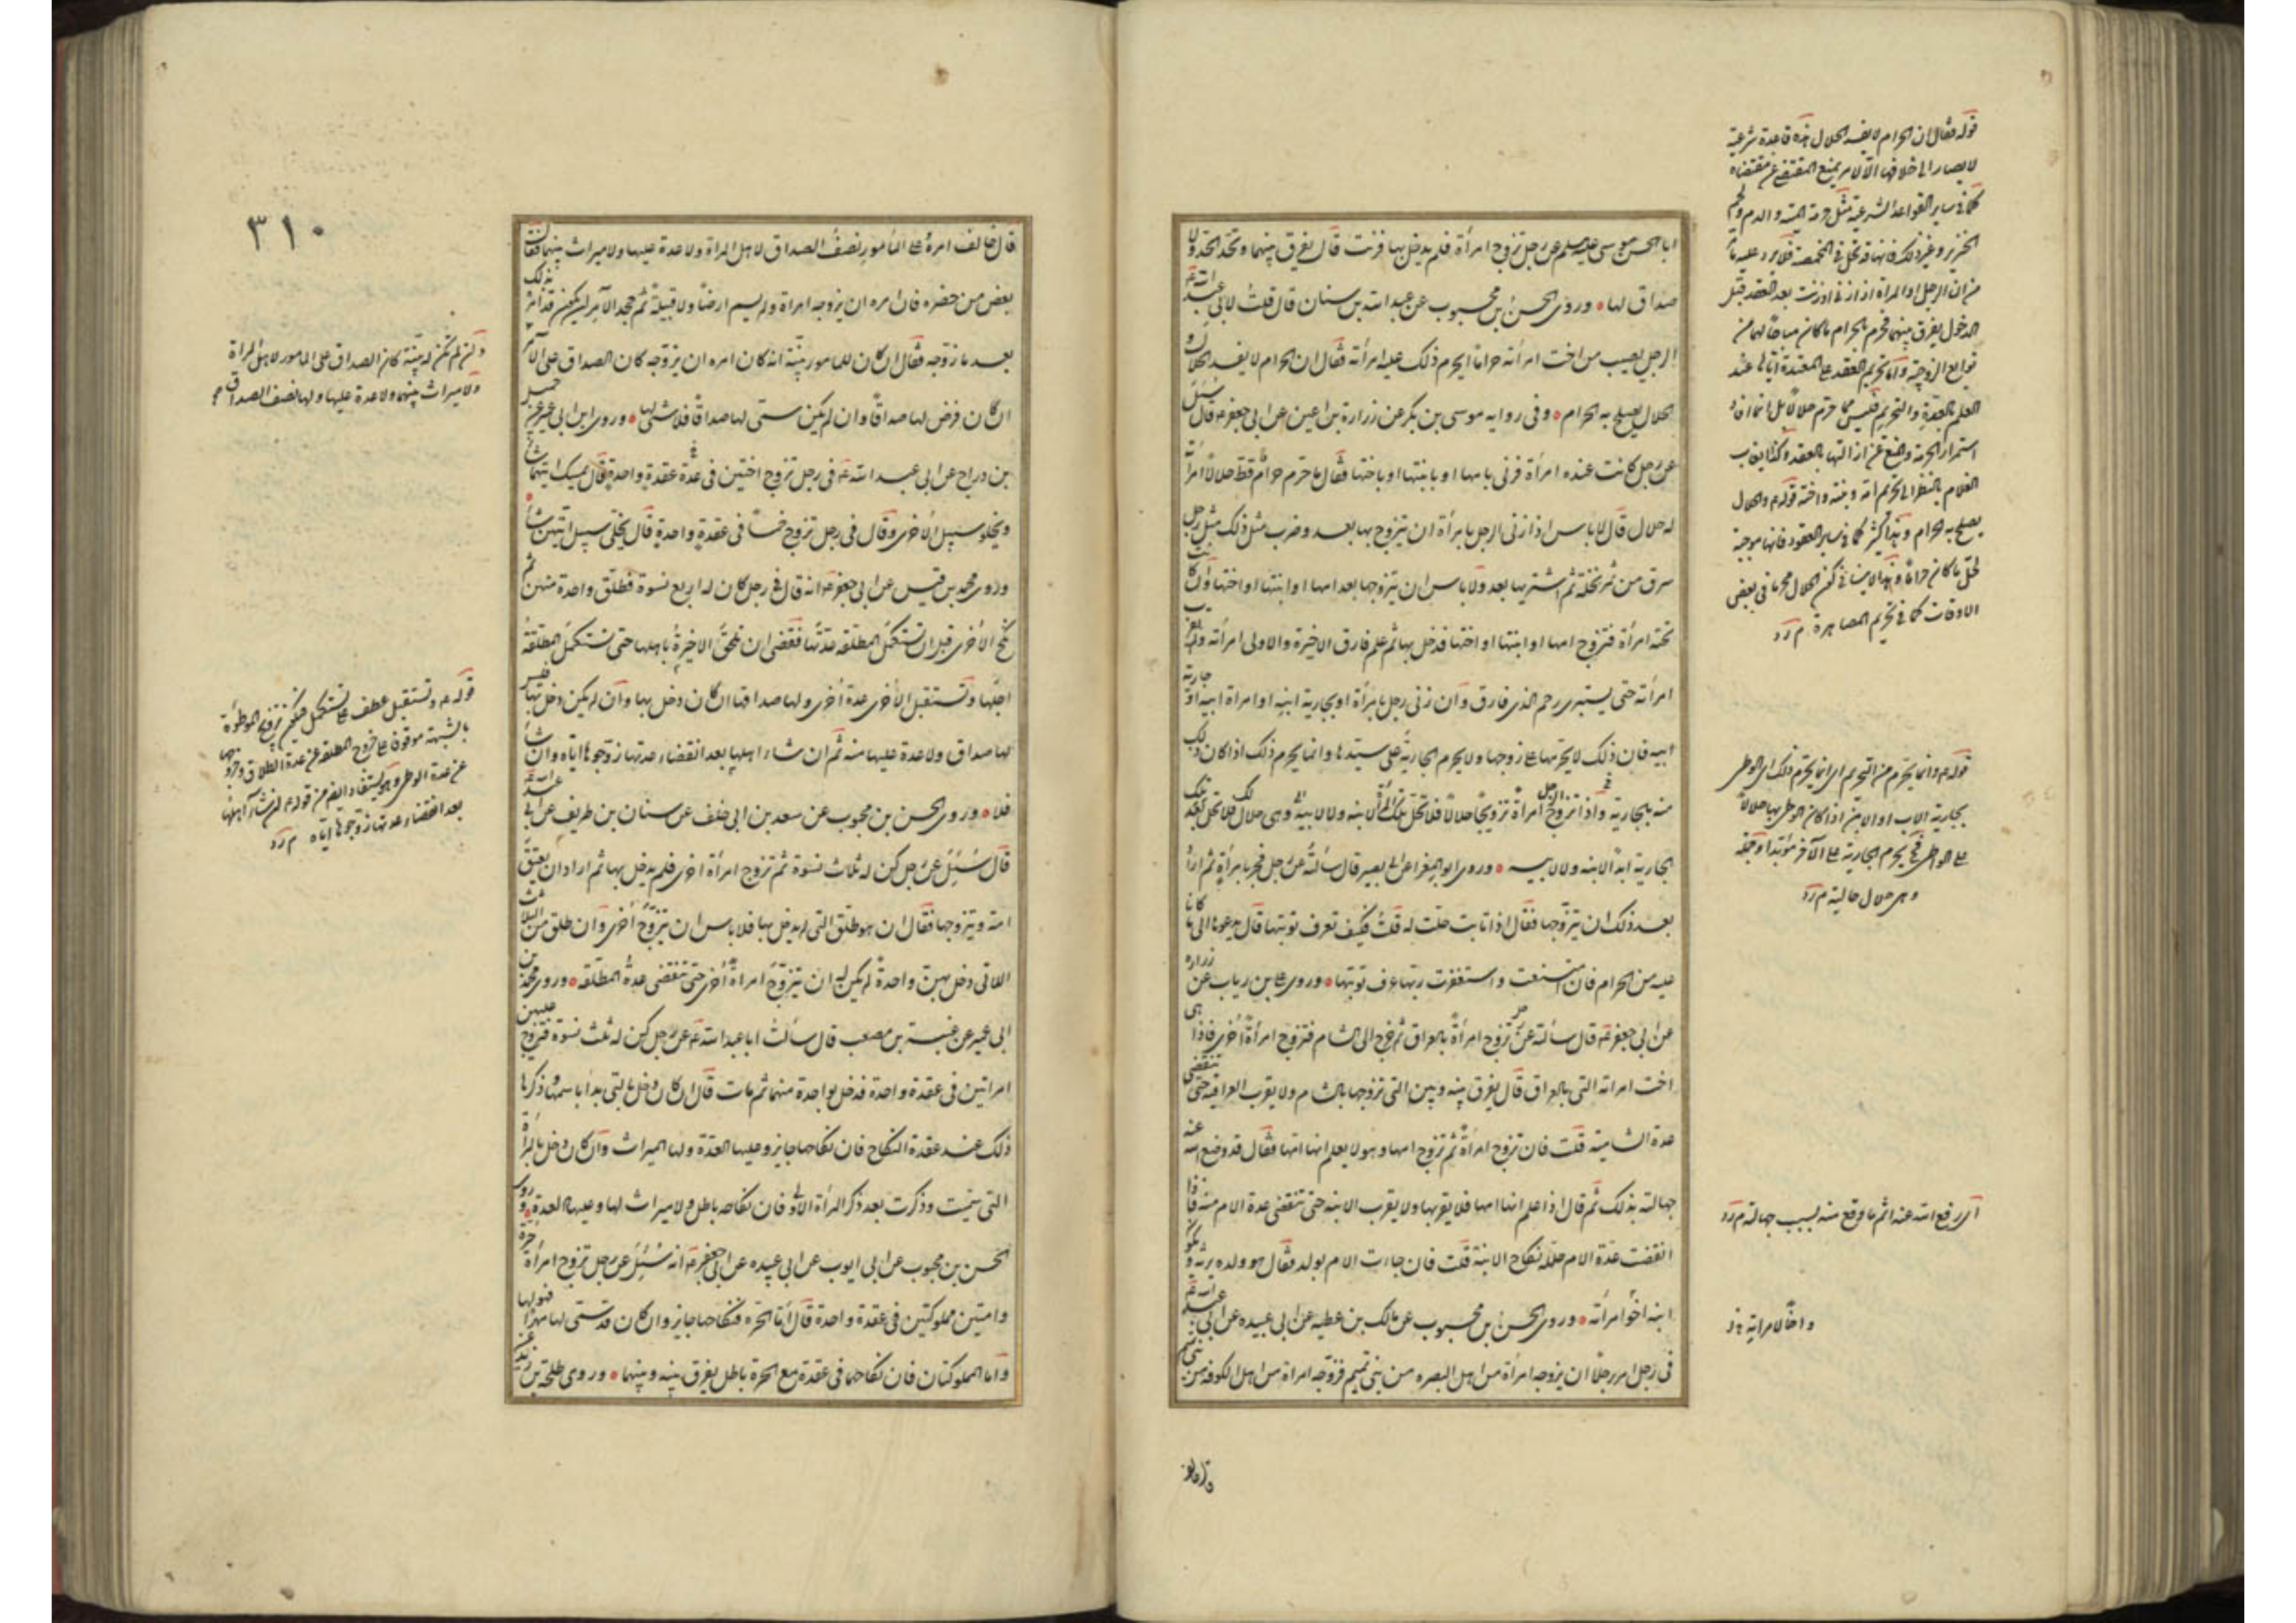 ابا الحسن موسى عليه السلم عن رجل تزوج امرأة فلم يدخل بها فزنت قال يفرق بينهما وتحد الحد ولا
صداق لها وروى الحسن بن محبوب عن عبد الله بن سنان قال قلت لابى عبد الله ع
الرجل يصيب من اخت امرأته حراما ايحرم ذلك عليه امرأته فقال ان الحرام لا يفسد الحلال و
الحلال يصلح به الحرام وفى رواية موسى بن بكر عن زرارة بن اعين عن ابى جعفر ع قال سئل
عن رجل كانت عنده امرأة فزنى بامها او بابنتها او باختها فقال ما حرم حرام قط حلالا امرأته
له حلال قال لا باس اذا زنى الرجل بامرأة ان يتزوج بها بعد وضرب مثل ذلك مثل رجل
سرق من ثمر نخلة ثم اشتريها بعد ولا باس ان يتزوجها بعد امها او ابنتها او اختها وان كانت
تحته امرأة فتزوج امها او ابنتها او اختها فدخل بها ثم علم فارق الاخيرة والاولى امرأته ولم يقرب
امرأته حتى يستبرى رحم الذى فارق وان زنى رجل بامرأة او بجارية ابنه او امراة ابيه او جارية
ابيه فان ذلك لا يحرمها على زوجها ولا يحرم الجارية على سيدها وانما يحرم ذلك اذا كان ذلك
منه بالجارية واذا تزوج الرجل امرأة تزويجا حلالا فلا تحل تلك المرأة لابنه ولا لابيه وهى حلال فلا تحل تلك
الجارية ابدا لابنه ولا لابيه وروى ابو المغرا عن ابى بصير قال سألته عن رجل فجر بامرأة ثم اراد
بعد ذلك ان يتزوجها فقال اذا تابت حلت له قلت فكيف تعرف توبتها قال يدعوها الى ما كانا
عليه من الحرام فان امتنعت واستغفرت ربها عرف توبتها وروى على بن رياب عن زرارة
عن ابى جعفر ع قال سألته عن رجل تزوج امرأة بالعراق ثم خرج الى الشام فتزوج امرأة اخرى فاذا هى
اخت امراته التى بالعراق قال يفرق بينه وبين التى تزوجها بالشام ولا يقرب العراقية حتى تنقضى
عدة الشامية قلت فان تزوج امرأة ثم تزوج امها وهو لا يعلم انها امها فقال قد وضع الله عنه
جهالته بذلك ثم قال اذا علم انها امها فلا يقربها ولا يقرب الابنة حتى تنقضى عدة الام منه فاذا
انقضت عدة الام حل له نكاح الابنة قلت فان جاءت الام بولد فقال هو ولده يرثه ويكون
ابنه اخو امرأته وروى الحسن بن محبوب عن مالك بن عطية عن ابى عبيدة عن ابى عبد الله ع
فى رجل امر رجلا ان يزوجه امرأة من اهل البصره من بنى تميم فزوجه امراة من اهل الكوفه من بنى تميم
قوله فقال ان الحرام لا يفسد الحلال هذه قاعدة شرعية
لا يصار الى خلافها الا لامر يمنع المقتضى عن مقتضاه
كما فى ساير القواعد الشرعية مثل حرمة الميتة والدم ولحم
الخنزير وغير ذلك فانها قد تحل فى المخمصة فلا يرد عليه ما
من ان الرجل او المرأة اذا زنى او زنت بعد العقد قبل
الدخول يفرق بينهما فحرم بالحرام ما كان مباحا لهما من
توابع الزوجية
العلم بالعدة والتحريم فليس مما حرم حلالا بل انما افاد
استمرار الحرمة
الغلام بالنظر الى تحريم امه وبنته واخته قوله ع والحلال
يصلح به الحرام وهذا كثير كما فى ساير العقود فانها موجبة
لحل ما كان حراما
الاوقات كما فى تحريم المصاهرة م ر د
قوله ع وانما يحرم من التحريم اى انما يحرم ذلك اى الوطى
بجارية الاب او الابن اذا كان الوطى بها حلالا
على الواطى فح يحرم الجارية على الآخر مؤبدا وجملة
وهى حلال حالية م ر د
اى رفع الله عنه اثم ما وقع منه بسبب جهالته م ر د
واخا لامراته
قال خالف امره على المأمور نصف الصداق لاهل المراة ولا عدة عليها ولا ميراث بينهما فقال
بعض من حضره فان امره ان يزوجه امراة ولم يسم ارضا ولا قبيلة ثم جحد الآمر ان يكون قد امره بذلك
بعد ما زوجه فقال ان كان للمامور بينة انه كان امره ان يزوجه كان الصداق على الآمر
ان كان فرض لها صداقا وان لم يكن سمى لها صداقا فلا شئ لها وروى ابن ابى عمير عن جميل
بن دراج عن ابى عبد الله ع فى رجل تزوج اختين فى عقدة واحدة قال يمسك ايتهما شاء
ويخلى سبيل الاخرى وقال فى رجل تزوج خمسا فى عقدة واحدة قال يخلى سبيل ايتهن شاء
وروى محمد بن قيس عن ابى جعفر ع انه قال فى رجل كان له اربع نسوة فطلق واحدة منهن ثم
نكح الاخرى قبل ان تستكمل المطلقة عدتها فقضى ان تلحق الاخيرة باهلها حتى تستكمل المطلقة
اجلها وتستقبل الاخرى عدة اخرى ولها صداقها ان كان دخل بها وان لم يكن دخل بها فليس
لها صداق ولا عدة عليها منه ثم ان شاء اهلها بعد انقضاء عدتها زوجوها اياه وان شاؤا
فلا وروى الحسن بن محبوب عن سعد بن ابى خلف عن سنان بن طريف عن ابى عبد الله ع
قال سئل عن رجل كن له ثلاث نسوة ثم تزوج امرأة اخرى فلم يدخل بها ثم اراد ان يعتق
امة ويتزوجها فقال ان هو طلق التى لم يدخل بها فلا باس ان يتزوج اخرى وان طلق من الثلاث
اللاتى دخل بهن واحدة لم يكن له ان يتزوج امراة اخرى حتى تنقضى عدة المطلقة وروى محمد بن
ابى عمير عن عنبسة بن مصعب قال سألت ابا عبد الله ع عن رجل كن له ثلث نسوة فتزوج عليهن
امراتين فى عقدة واحدة فدخل بواحدة منهما ثم مات قال ان كان دخل بالتى بدا باسمها وذكرها
ذلك عند عقدة النكاح فان نكاحها جايز وعليها العدة ولها الميراث وان كان دخل بالمرأة
التى سميت وذكرت بعد ذكر المرأة الاولى فان نكاحه باطل ولا ميراث لها وعليها العدة وروى
الحسن بن محبوب عن ابى ايوب عن ابى عبيده عن ابى جعفر ع انه سئل عن رجل تزوج امرأة حرة
وامتين مملوكتين فى عقدة واحدة قال اما الحرة فنكاحها جايز وان كان قد سمى لها مهرا فهو لها
واما المملوكتان فان نكاحهما فى عقدة مع الحرة باطل يفرق بينه وبينهما وروى طلحة بن زيد عن
٣١٠
وان لم تكن له بينة كان الصداق على المامور لاهل المراة
ولا ميراث بينهما ولا عدة عليها ولها نصف الصداق
قوله ع وتستقبل عطف على تستكمل فيكون تزويج الموطوءة
بالشبهة موقوفا على خروج المطلقة عن عدة الطلاق وخروجها
عن عدة الوطى وهو يستفاد ايضا من قوله ع ان شاء اهلها
بعد انقضاء عدتها زوجوها اياه م ر د